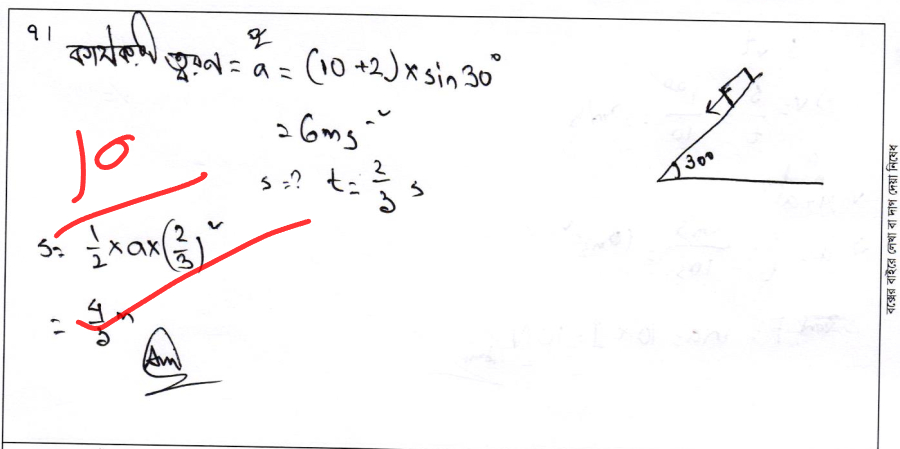 ৭।
কার্যকরী ত্বরণ = a = (10 + 2) × sin 30°
= 6 ms⁻²
s = ? t = 2/3 s
30°
10
s = 1/2 × a × (2/3)²
= 4/3 m
Ans
বক্সের বাইরে লেখা বা দাগ দেয়া নিষেধ